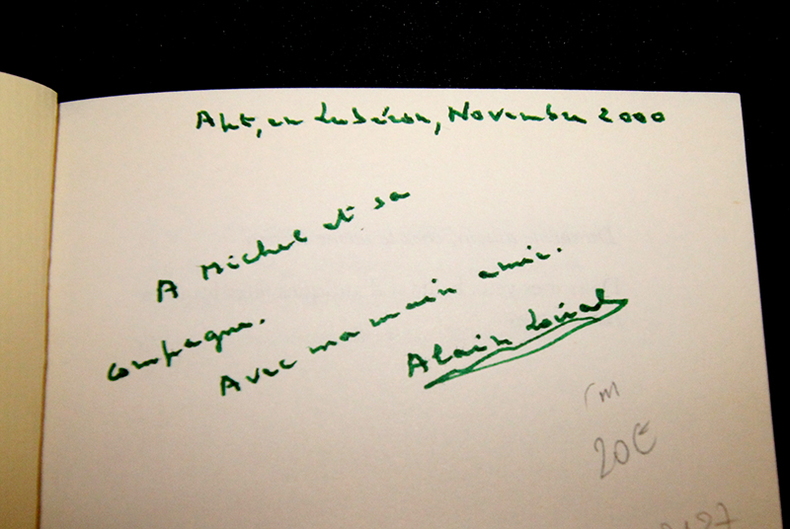 Apt, en Lubéron, Novembre 2000
A Michel et sa
compagne.
Avec ma main amie.
Alain
20€